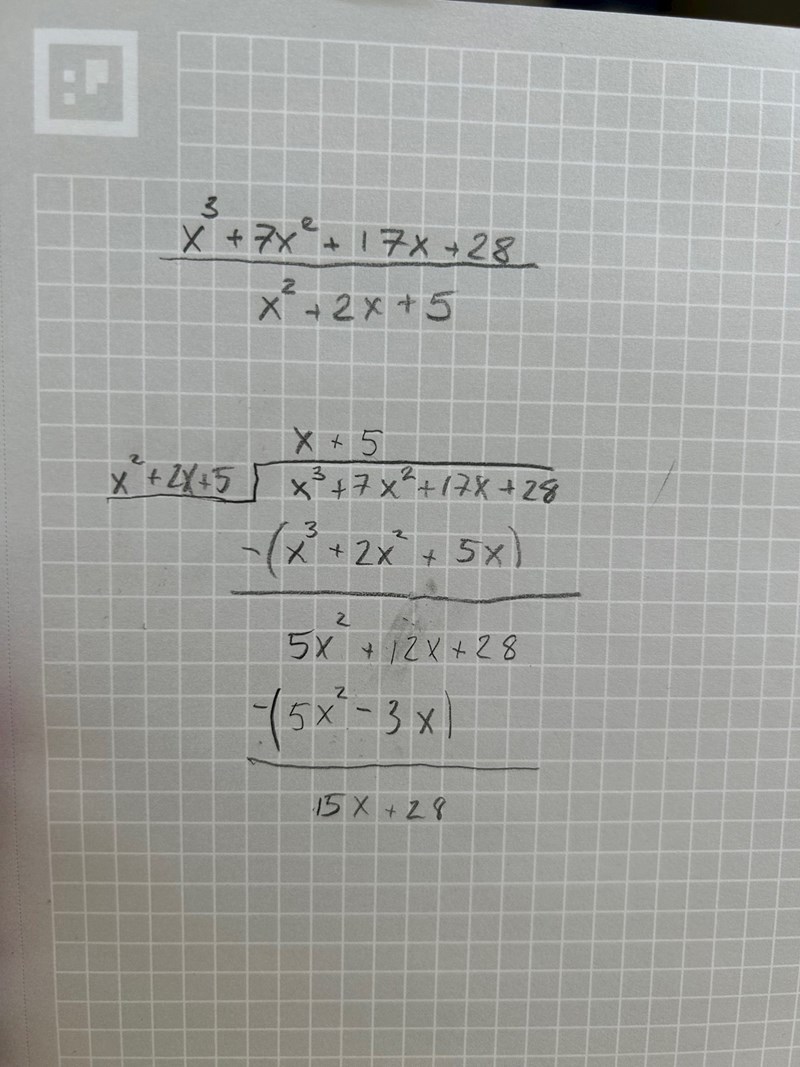 x³ + 7x² + 17x + 28
x² + 2x + 5
x + 5
x² + 2x + 5 x³ + 7x² + 17x + 28
-(x³ + 2x² + 5x)
5x² + 12x + 28
-(5x² - 3x)
15x + 28